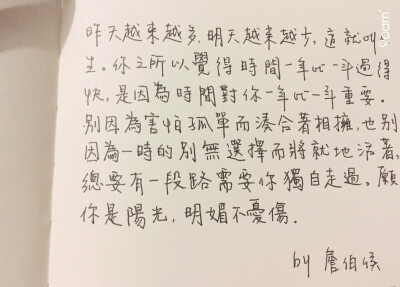 昨天越來越多,明天越來越少,這就叫
生。你之所以覺得時間一年比一年過得
快,是因為時間對你一年比一年重要。
別因為害怕孤單而湊合著相擁,也別
因為一時的別無選擇而將就地活著,
總要有一段路需要你獨自走過。願
你是陽光,明媚不憂傷.
by 詹伯侯